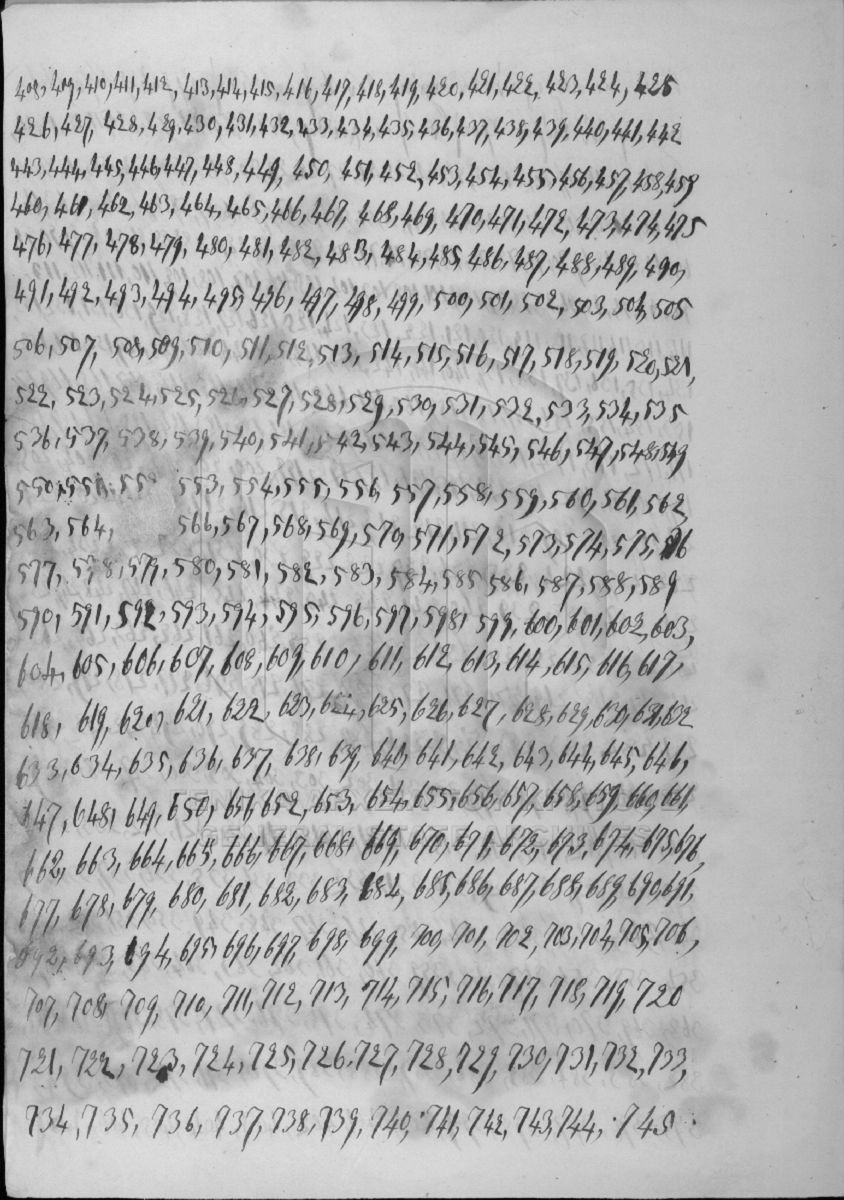 408, 409, 410, 411, 412, 413, 414, 415, 416, 417, 418, 419, 420, 421, 422, 423, 424, 425
426, 427, 428, 429, 430, 431, 432, 433, 434, 435, 436, 437, 438, 439, 440, 441, 442
443, 444, 445, 446, 447, 448, 449, 450, 451, 452, 453, 454, 455, 456, 457, 458, 459
460, 461, 462, 463, 464, 465, 466, 467, 468, 469, 470, 471, 472, 473, 474, 475
476, 477, 478, 479, 480, 481, 482, 483, 484, 485, 486, 487, 488, 489, 490,
491, 492, 493, 494, 495, 496, 497, 498, 499, 500, 501, 502, 503, 504, 505
506, 507, 508, 509, 510, 511, 512, 513, 514, 515, 516, 517, 518, 519, 520, 521,
522, 523, 524, 525, 526, 527, 528, 529, 530, 531, 532, 533, 534, 535
536, 537, 538, 539, 540, 541, 542, 543, 544, 545, 546, 547, 548, 549
550, 551, 553, 554, 555, 556, 557, 558, 559, 560, 561, 562,
563, 564, 566, 567, 568, 569, 570, 571, 572, 573, 574, 575, 576
577, 578, 579, 580, 581, 582, 583, 584, 585 586, 587, 588, 589
590, 591, 592, 593, 594, 595, 596, 597, 598, 599, 600, 601, 602, 603,
604, 605, 606, 607, 608, 609, 610, 611, 612, 613, 614, 615, 616, 617,
618, 619, 620, 621, 622, 623, 624, 625, 626, 627, 628, 629, 630, 631, 632
633, 634, 635, 636, 637, 638, 639, 640, 641, 642, 643, 644, 645, 646,
647, 648, 649, 650, 651, 652, 653, 654, 655, 656, 657, 658, 659, 660, 661,
662, 663, 664, 665, 666, 667, 668, 669, 670, 671, 672, 673, 674, 675, 676,
677, 678, 679, 680, 681, 682, 683, 684, 685, 686, 687, 688, 689, 690, 691,
692, 693, 694, 695, 696, 697, 698, 699, 700, 701, 702, 703, 704, 705, 706,
707, 708, 709, 710, 711, 712, 713, 714, 715, 716, 717, 718, 719, 720
721, 722, 723, 724, 725, 726, 727, 728, 729, 730, 731, 732, 733,
734, 735, 736, 737, 738, 739, 740, 741, 742, 743, 744, 745